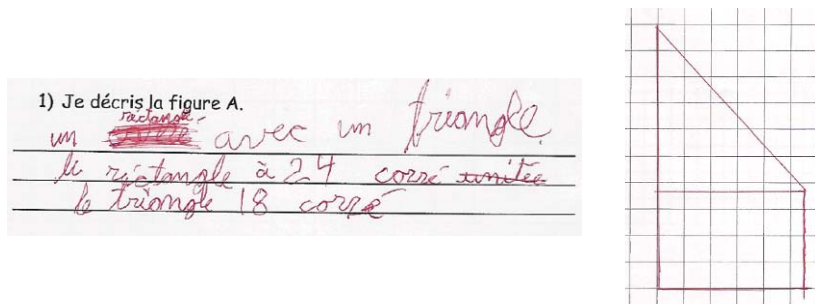 1) Je décris la figure A.
rectangle
un avec un triangle
le rictangle à 24 corré unitée
le triangle 18 corré